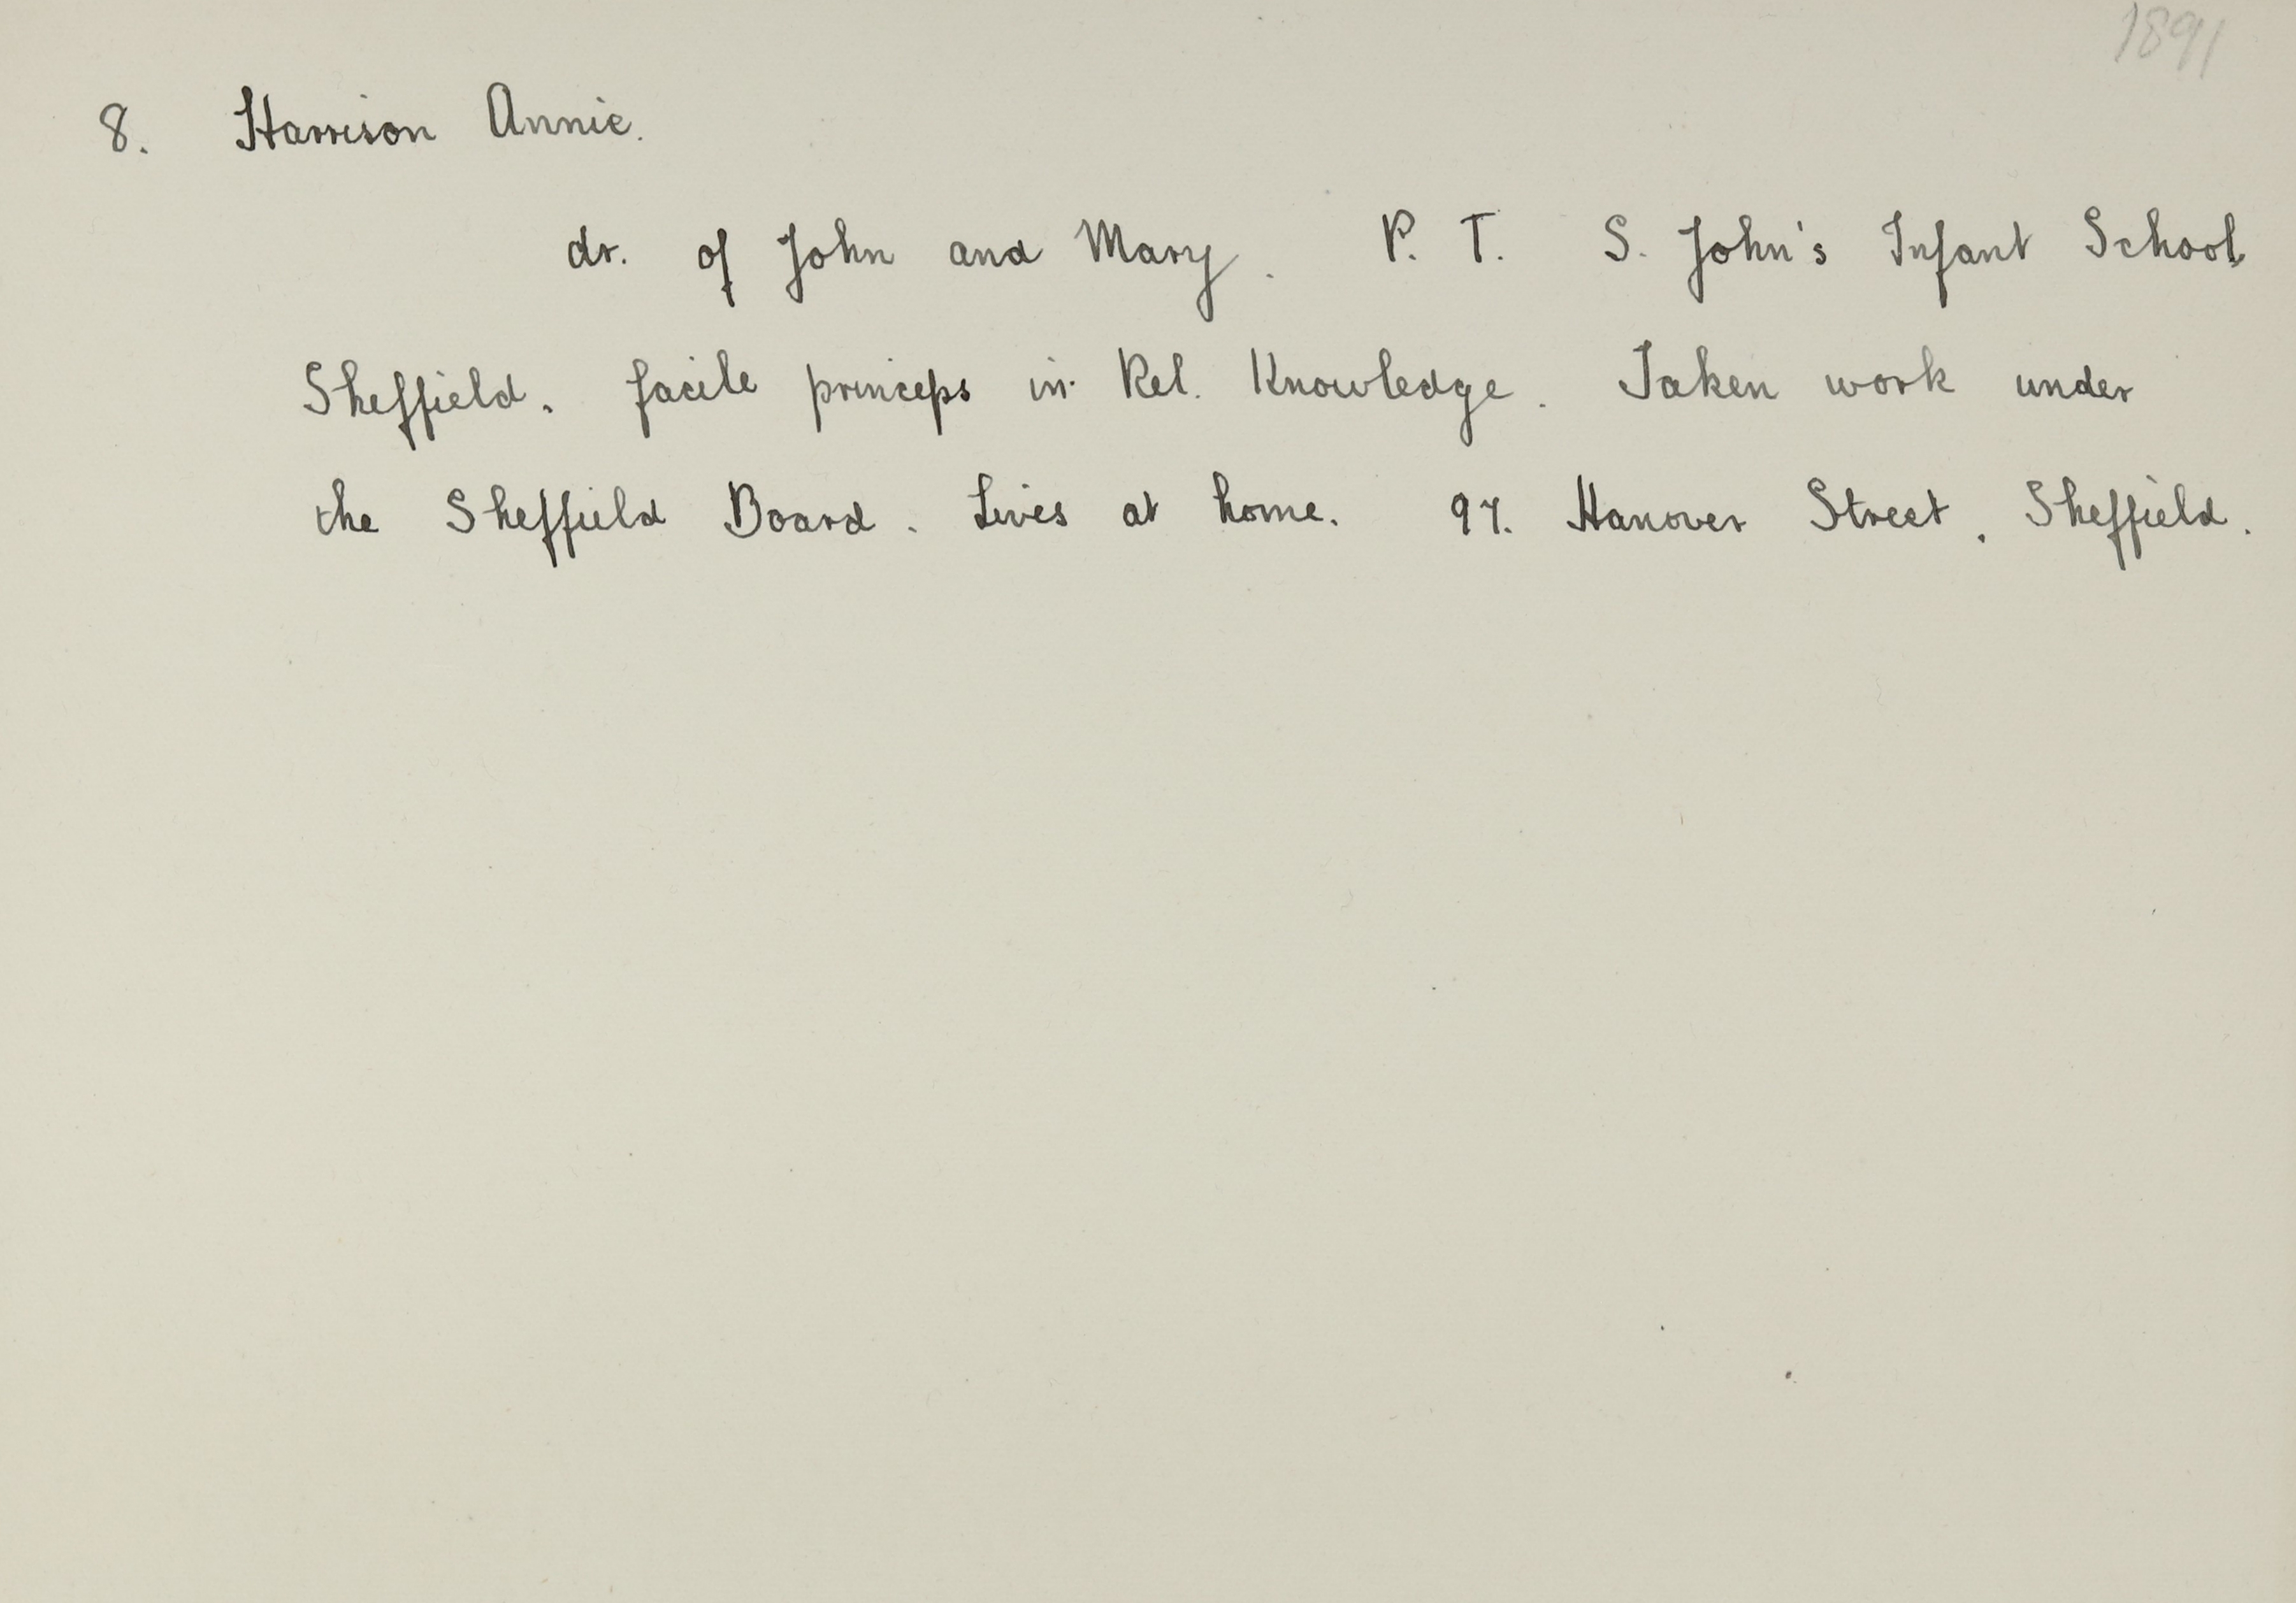 1891
8. Harrison Annie.
dr. of John and Mary. P. T. S. John's Infant School
Sheffield. facile princeps in Rel. Knowledge. Taken work under
the Sheffield Board. Lives at home. 97. Hanover Street, Sheffield.